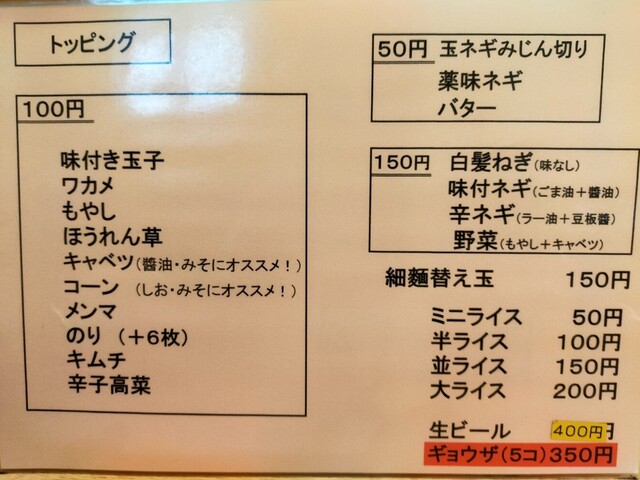 トッピング
100円
味付き玉子
ワカメ
もやし
ほうれん草
キャベツ(醬油・みそにオススメ!)
コーン (しお・みそにオススメ!)
メンマ
のり (+6枚)
キムチ
辛子高菜
50円 玉ネギみじん切り
薬味ネギ
バター
150円 白髪ねぎ(味なし)
味付ネギ(ごま油+醬油)
辛ネギ(ラー油+豆板醬)
野菜(もやし+キャベツ)
細麵替え玉 150円
ミニライス 50円
半ライス 100円
並ライス 150円
大ライス 200円
生ビール 400円
ギョウザ(5コ)350円